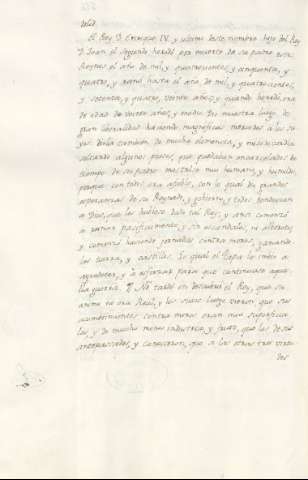 El Rey D. Enrrique IV. y ultimo deste nombre hijo del Rey
D. Juan el segundo heredó por muerte de su padre estos
Reynos el año de mil, y quatrocientos, y cinquenta, y
quatro, y reynó hasta el año de mil, y quatrocientos,
y setenta, y quatro, veinte años, y quando heredó, era
de edad de veinte años, y medio. Dio muestra luego de
gran liberalidad haciendo magnificas mercedes a los su
yos de la comun, de mucha clemencia, y misericordia
soltando algunos presos, que quedaban encarcelados de
tiempo de su padre mostrose muy humano, y humilde,
porque con todos era afable, con lo qual dio grandes
esperanzas de su Reynado, y gobierno, y todos bendecian
a Dios, que les hubiese dado tal Rey, y assi comenzó
a reynar pacificamente, y sin escandalo, ni alboroto,
y comenzó haciendo jornadas contra moros, ganando
les tierra, y castillos. Lo qual el Papa le embió a
agradecer, y a esforzar para que continuase aque
lla guerra. No tardó en descubrir el Rey, que su
animo no era Real, y los suyos luego vieron, que sus
acometimientos contra moros eran muy superficia
les, y de mucha menos industria, y fruto, que los de sus
antepasados, y conocieron, que a las otras tres virtu
des